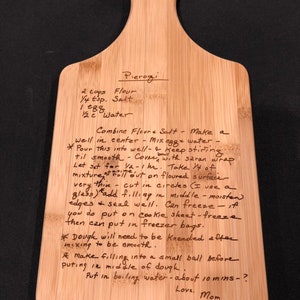 Pierogi
2 cups Flour
1/4 tsp. Salt
1 egg
1/2 c Water
Combine Flour & Salt - Make a
well in center - Mix egg & water -
* Pour this into well - & keep stirring
til smooth - Cover with saran wrap
Let set for 1/2 - 1 hr. Take 1/4 of
mixture & roll out on floured surface
very thin - cut in circles (I use a
glass) add filling in middle - moisten
edges & seal well. Can freeze - if
you do put on cookie sheet - freeze
then can put in freezer bags.
* Dough will need to be kneaded after
mixing to be smooth.
* Make filling into a small ball before
puting in middle of dough.
Put in boiling water - about 10 mins - ?
Love,
Mom